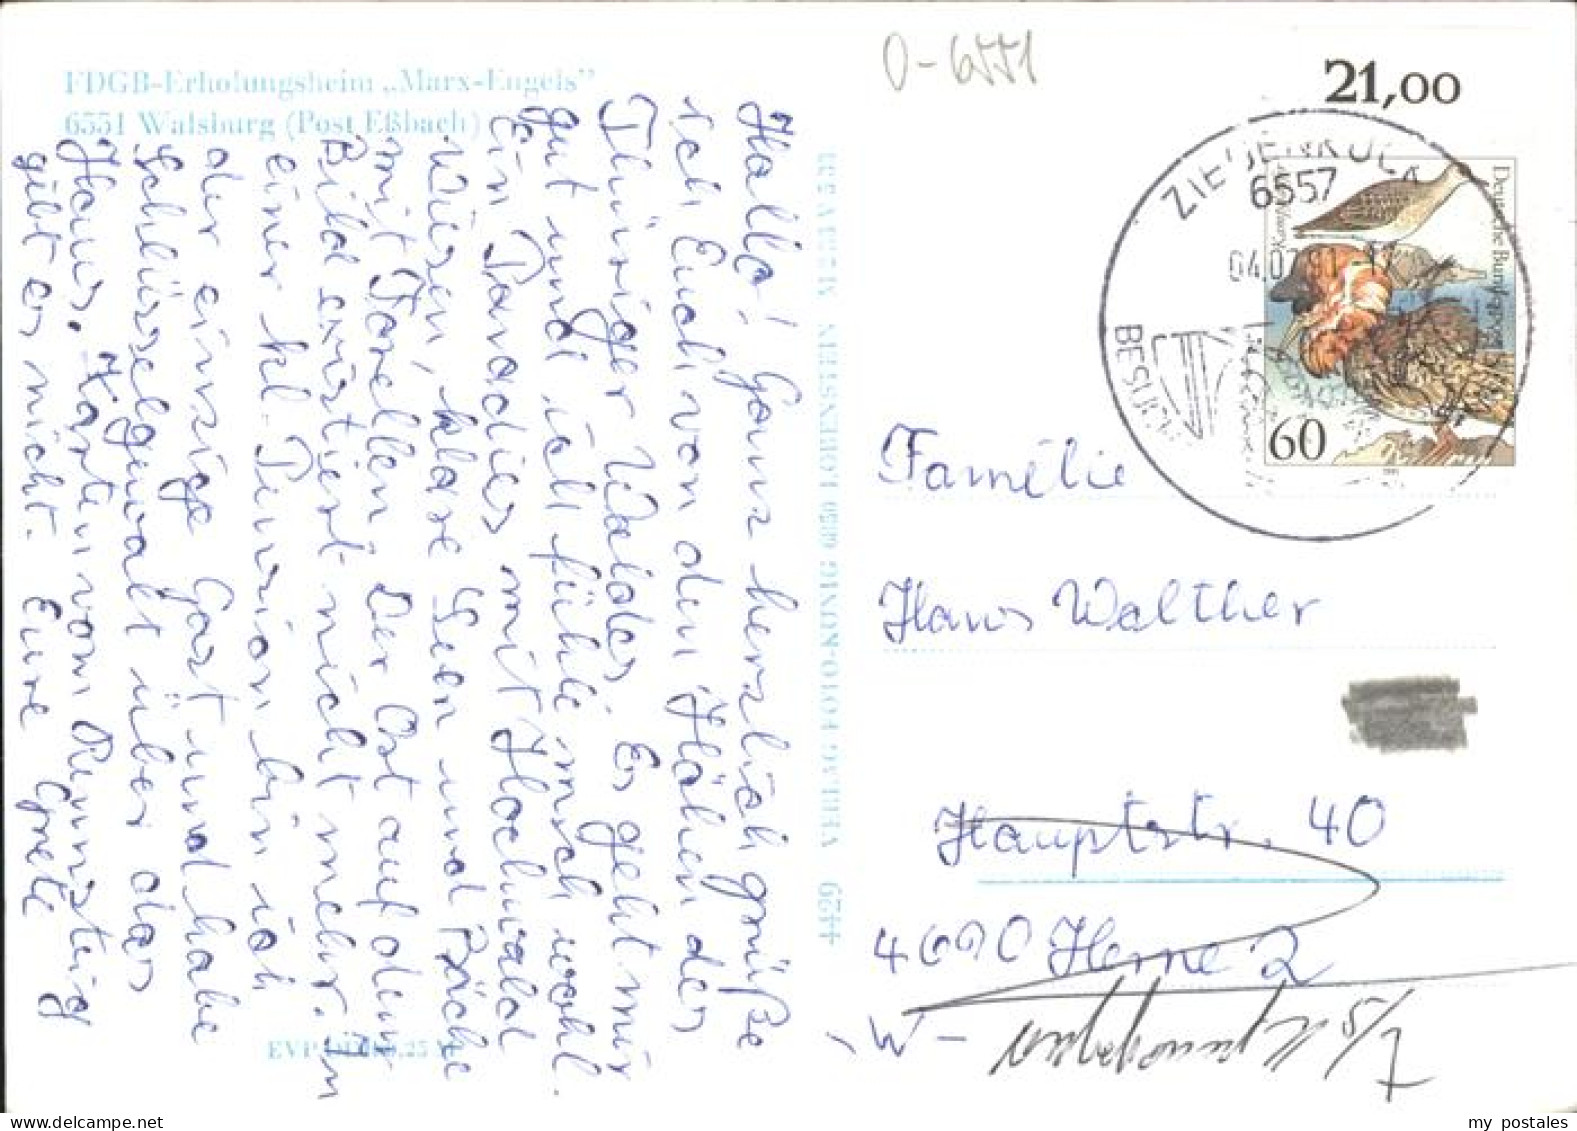 FDGB-Erholungsheim „Marx-Engels”
6551 Walsburg (Post Eßbach)
Hallo! Ganz herzlich grüße
ich Euch von den Höhen des
Thüringer Waldes. Es geht mir
gut und ich fühle mich wohl.
Ein Paradies mit Hochwald
Wiesen, klare Seen und Bäche
mit Forellen. Der Ort auf dem
Bild existiert nicht mehr. In
einer kl. Pension bin ich
der einzige Gast und habe
Schlüsselgewalt über das
Haus. Karten vom Rennsteig
gibt es nicht. Eure Grete
EVP 0,25 M
4429 VERLAG FOTO-KÖNIG 6850 LOBENSTEIN
O-6551
21,00
6557
04.0
Deutsche Bundespost
60
1991
Familie
Hans Walther
Hauptstr. 40
4690 Herne 2
-W-
my postales